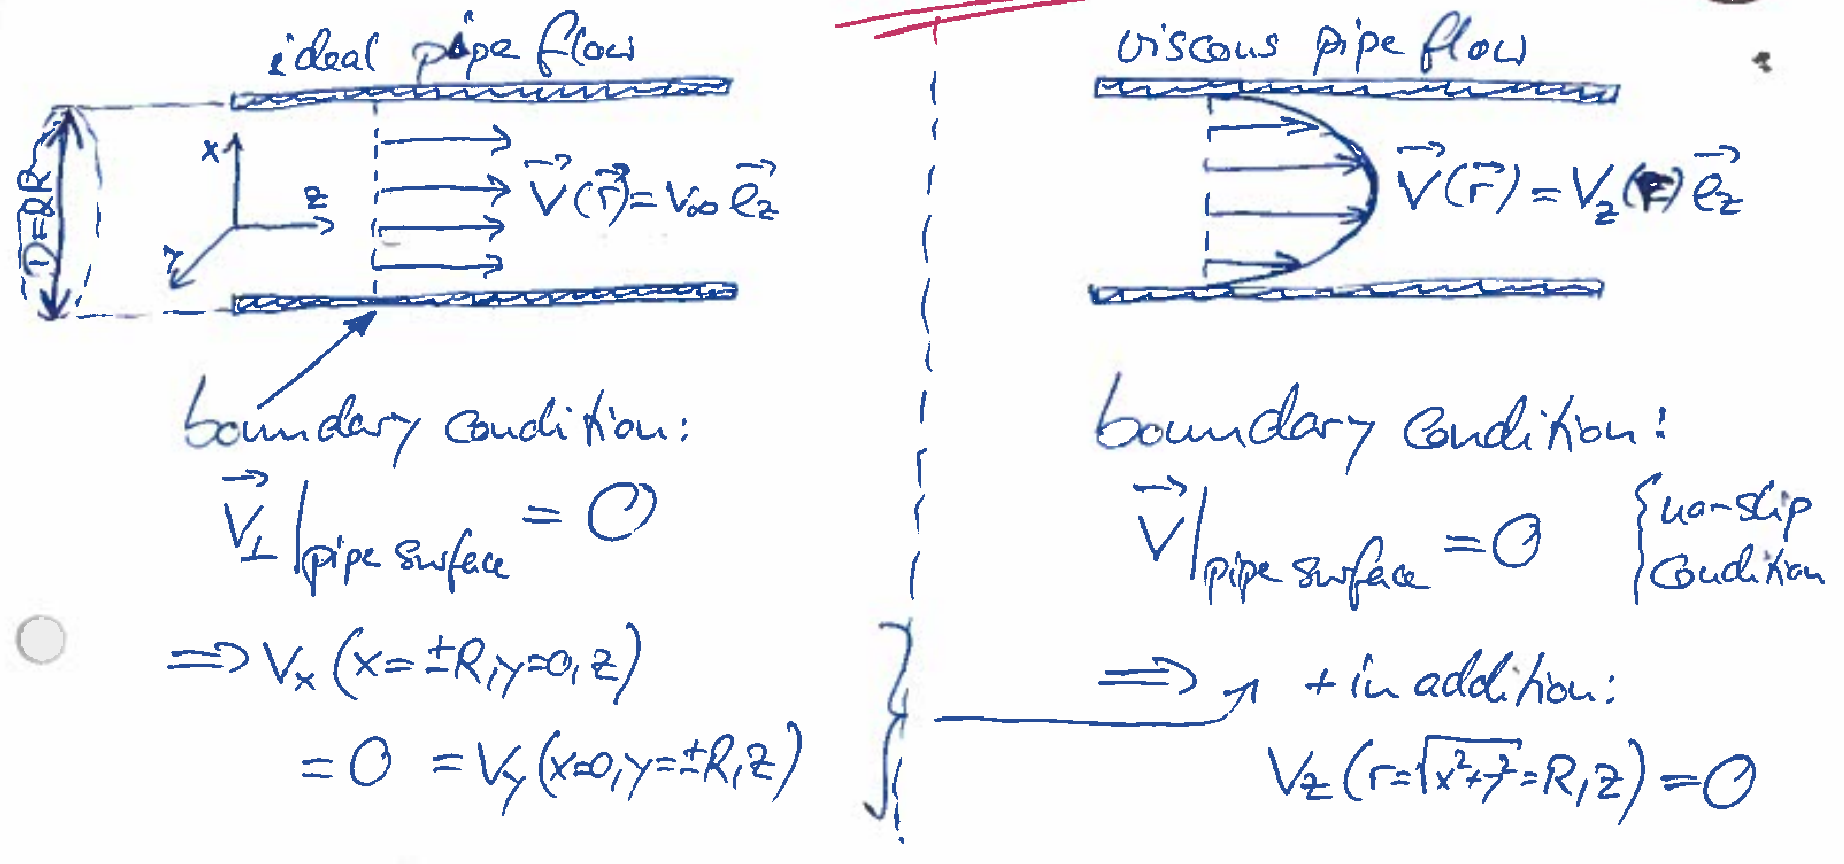 ideal pipe flow
D=2R
x
z
y
V⃗(r⃗)=V∞ e⃗z
boundary condition:
V⃗⊥|pipe surface = 0
⇒ Vx (x=±R,y=0,z)
= 0 = Vy (x=0,y=±R,z)
viscous pipe flow
V⃗(r⃗) = Vz(r) e⃗z
boundary condition:
V⃗|pipe surface = 0 {no-slip
condition
⇒ + in addition:
Vz (r=√x²+y²=R,z) = 0